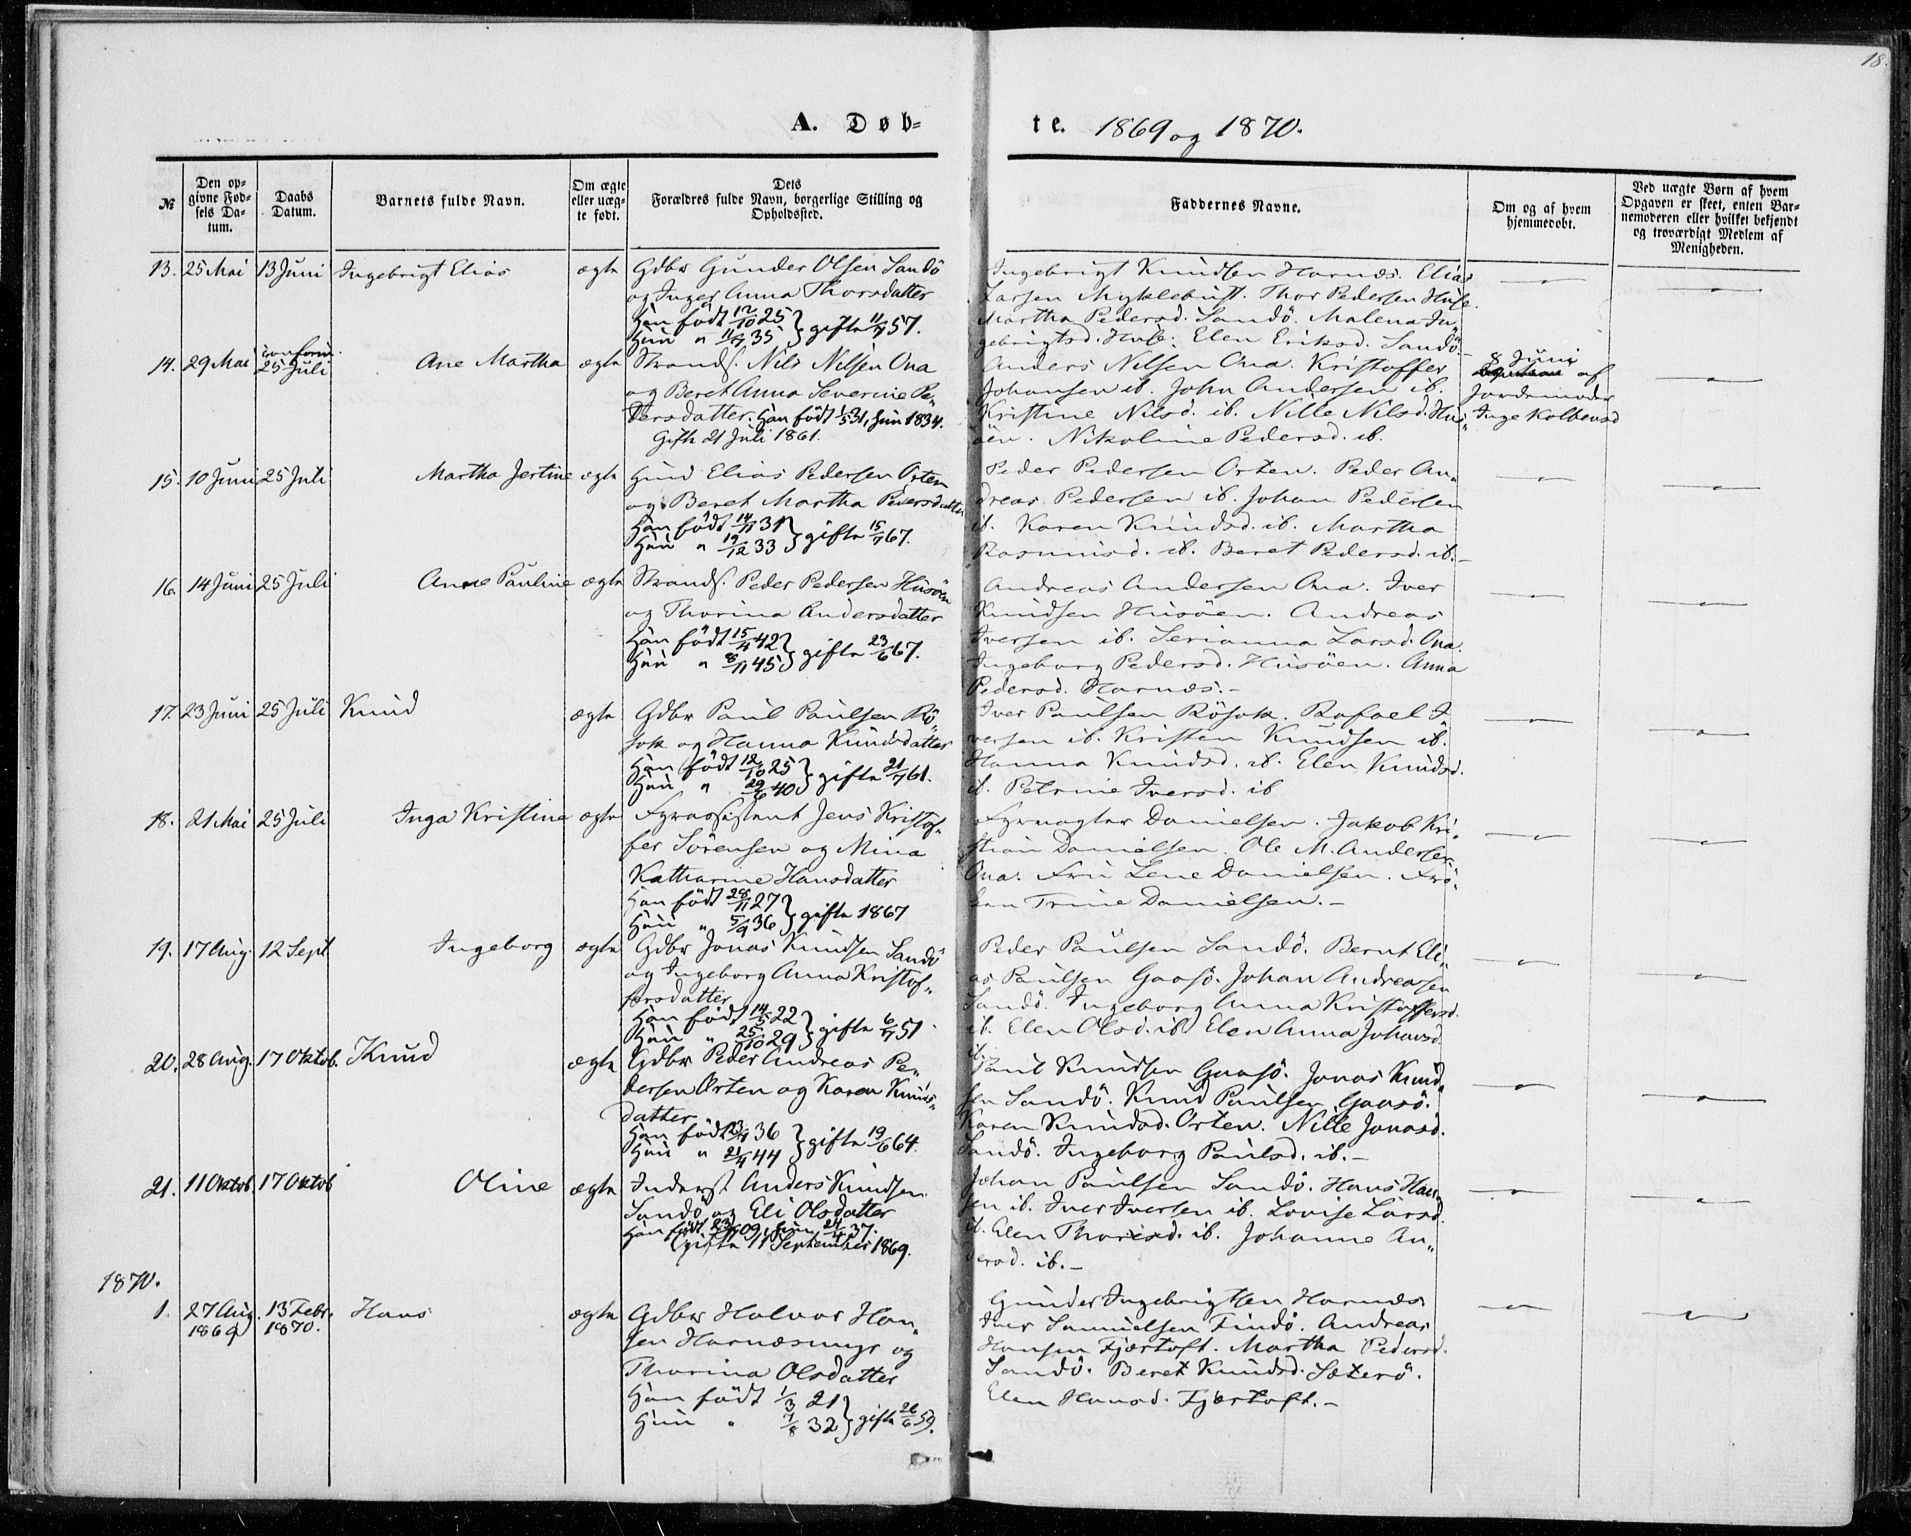 18.
A. Døb-
te. 1869 og 1870.
№
Den op-
givne Fød-
sels Da-
tum.
Daabs
Datum.
Barnets fulde Navn.
Om ægte
eller uæg-
te født.
Dets
Forældres fulde Navn, borgerlige Stilling og
Opholdssted.
Faddernes Navne.
Om og af hvem
hjemmedøbt.
Ved uægte Børn af hvem
Opgaven er skeet, enten Bar-
nemoderen eller hvilket bekjendt
og troværdigt Medlem af
Menigheden.
13. 25 Mai 13 Juni Ingebrigt Elias ægte
Gdbr Gunder Olsen Sandö
og Inger Anna Thorsdatter
Han födt 12/10 25 } gifte 11/7 57.
Hun " 11/9 35
Ingebrigt Knudsen Harnæs. Elias
Larsen Myklebust. Thor Pedersen Huse
Martha Pedersd. Sandö. Malena In-
gebrigtsd. Huse. Elen Eriksd. Sandö.
14. 29 Mai confirm. 25 Juli Ane Martha ægte
Strands. Nils Nilsen Ona
og Beret Anna Severine Pe-
dersdatter. Han födt 1/3 31, hun 1834.
Gifte 21 Juli 1861.
Anders Nilsen Ona. Kristoffer
Johansen ib. John Andersen ib.
Kristine Nilsd. ib. Nille Nilsd. Hus-
öen. Nikoline Pedersd. ib.
8 Juni
af
Jordemoder
Inge Kolbensd
15. 10 Juni 25 Juli Martha Jertine ægte
Huusm Elias Pedersen Orten
og Beret Martha Pedersdatter
Han födt 14/11 31 } gifte 15/7 67.
Hun " 19/12 33
Peder Pedersen Orten. Peder An-
dreas Pedersen ib. Johan Pedersen
ib. Karen Knudsd. ib. Martha
Rasmusd. ib. Beret Pedersd. ib.
16. 14 Juni 25 Juli Anne Pauline ægte
Strands. Peder Pedersen Husöen
og Thorina Andersdatter
Han födt 15/4 42 } gifte 23/6 67.
Hun " 8/11 45
Andreas Andersen Ona. Iver
Knudsen Husöen. Andreas
Iversen ib. Serianna Larsd. Ona.
Ingeborg Pedersd. Husöen. Anna
Pedersd. Harnæs.
17. 23 Juni 25 Juli Knud ægte
Gdbr Paul Paulsen Rö-
sok og Hanna Knudsdatter
Han födt 12/10 25 } gifte 21/7 61.
Hun " 29/6 40
Iver Paulsen Rösok. Rafael I-
versen ib. Kristen Knudsen ib.
Hanna Knudsd. ib. Elen Knudsd.
ib. Petrine Iversd. ib
18. 21 Mai 25 Juli Inga Kristine ægte
Fyrassistent Jens Kristof-
fer Sörensen og Mina
Katharine Hansdatter
Han födt 28/11 27 } gifte 1867
Hun " 5/9 36
Fyrvogter Danielsen. Jakob Kri-
stian Danielsen. Ole M. Andersen
Ona. Fru Lene Danielsen. Frö-
ken Trine Danielsen.
19. 17 Aug. 12 Sept Ingeborg ægte
Gdbr Jonas Knudsen Sandö
og Ingeborg Anna Kristof-
fersdatter
Han födt 14/5 22 } gifte 6/7 51
Hun " 25/10 29
Peder Paulsen Sandö. Bernt Eli-
as Paulsen Gaasö. Johan Andreasen
Sandö. Ingeborg Anna Kristoffersd.
ib. Elen Olsd. ib. Elen Anna Johansd
ib.
20. 28 Aug. 17 Oktob. Knud ægte
Gdbr Peder Andreas Pe-
dersen Orten og Karen Knuds-
datter
Han födt 23/4 36 } gifte 19/6 64.
Hun " 21/4 44
Paul Knudsen Gaasö. Jonas Knud-
sen Sandö. Knud Paulsen Gaasö.
Karen Knudsd. Orten. Nille Jonasd.
Sandö. Ingeborg Paulsd. ib.
21. 11 Oktob. 17 Oktob Oline ægte
Inderst Anders Knudsen
Sandö og Eli Olsdatter
Han födt 23/6 09, hun 24/4 37.
(gifte 11 September 1869.
Johan Paulsen Sandö. Hans Han-
sen ib. Iver Iversen ib. Lovise Larsd.
ib. Elen Thorisd. ib. Johanne An-
dersd. ib.
1870.
1. 27 Aug. 1869 13 Febr. 1870. Hans ægte
Gdbr Halvor Han-
sen Harnæsmyr og
Thorina Olsdatter
Han födt 1/3 21 } gifte 26/6 59.
Hun " 7/8 32
Gunder Ingebrigtsen Harnæs
Iver Samuelsen Findö. Andreas
Hansen Fjærtoft. Martha Pedersd.
Sandö. Beret Knudsd. Sæterö.
Elen Hansd. Fjærtoft.